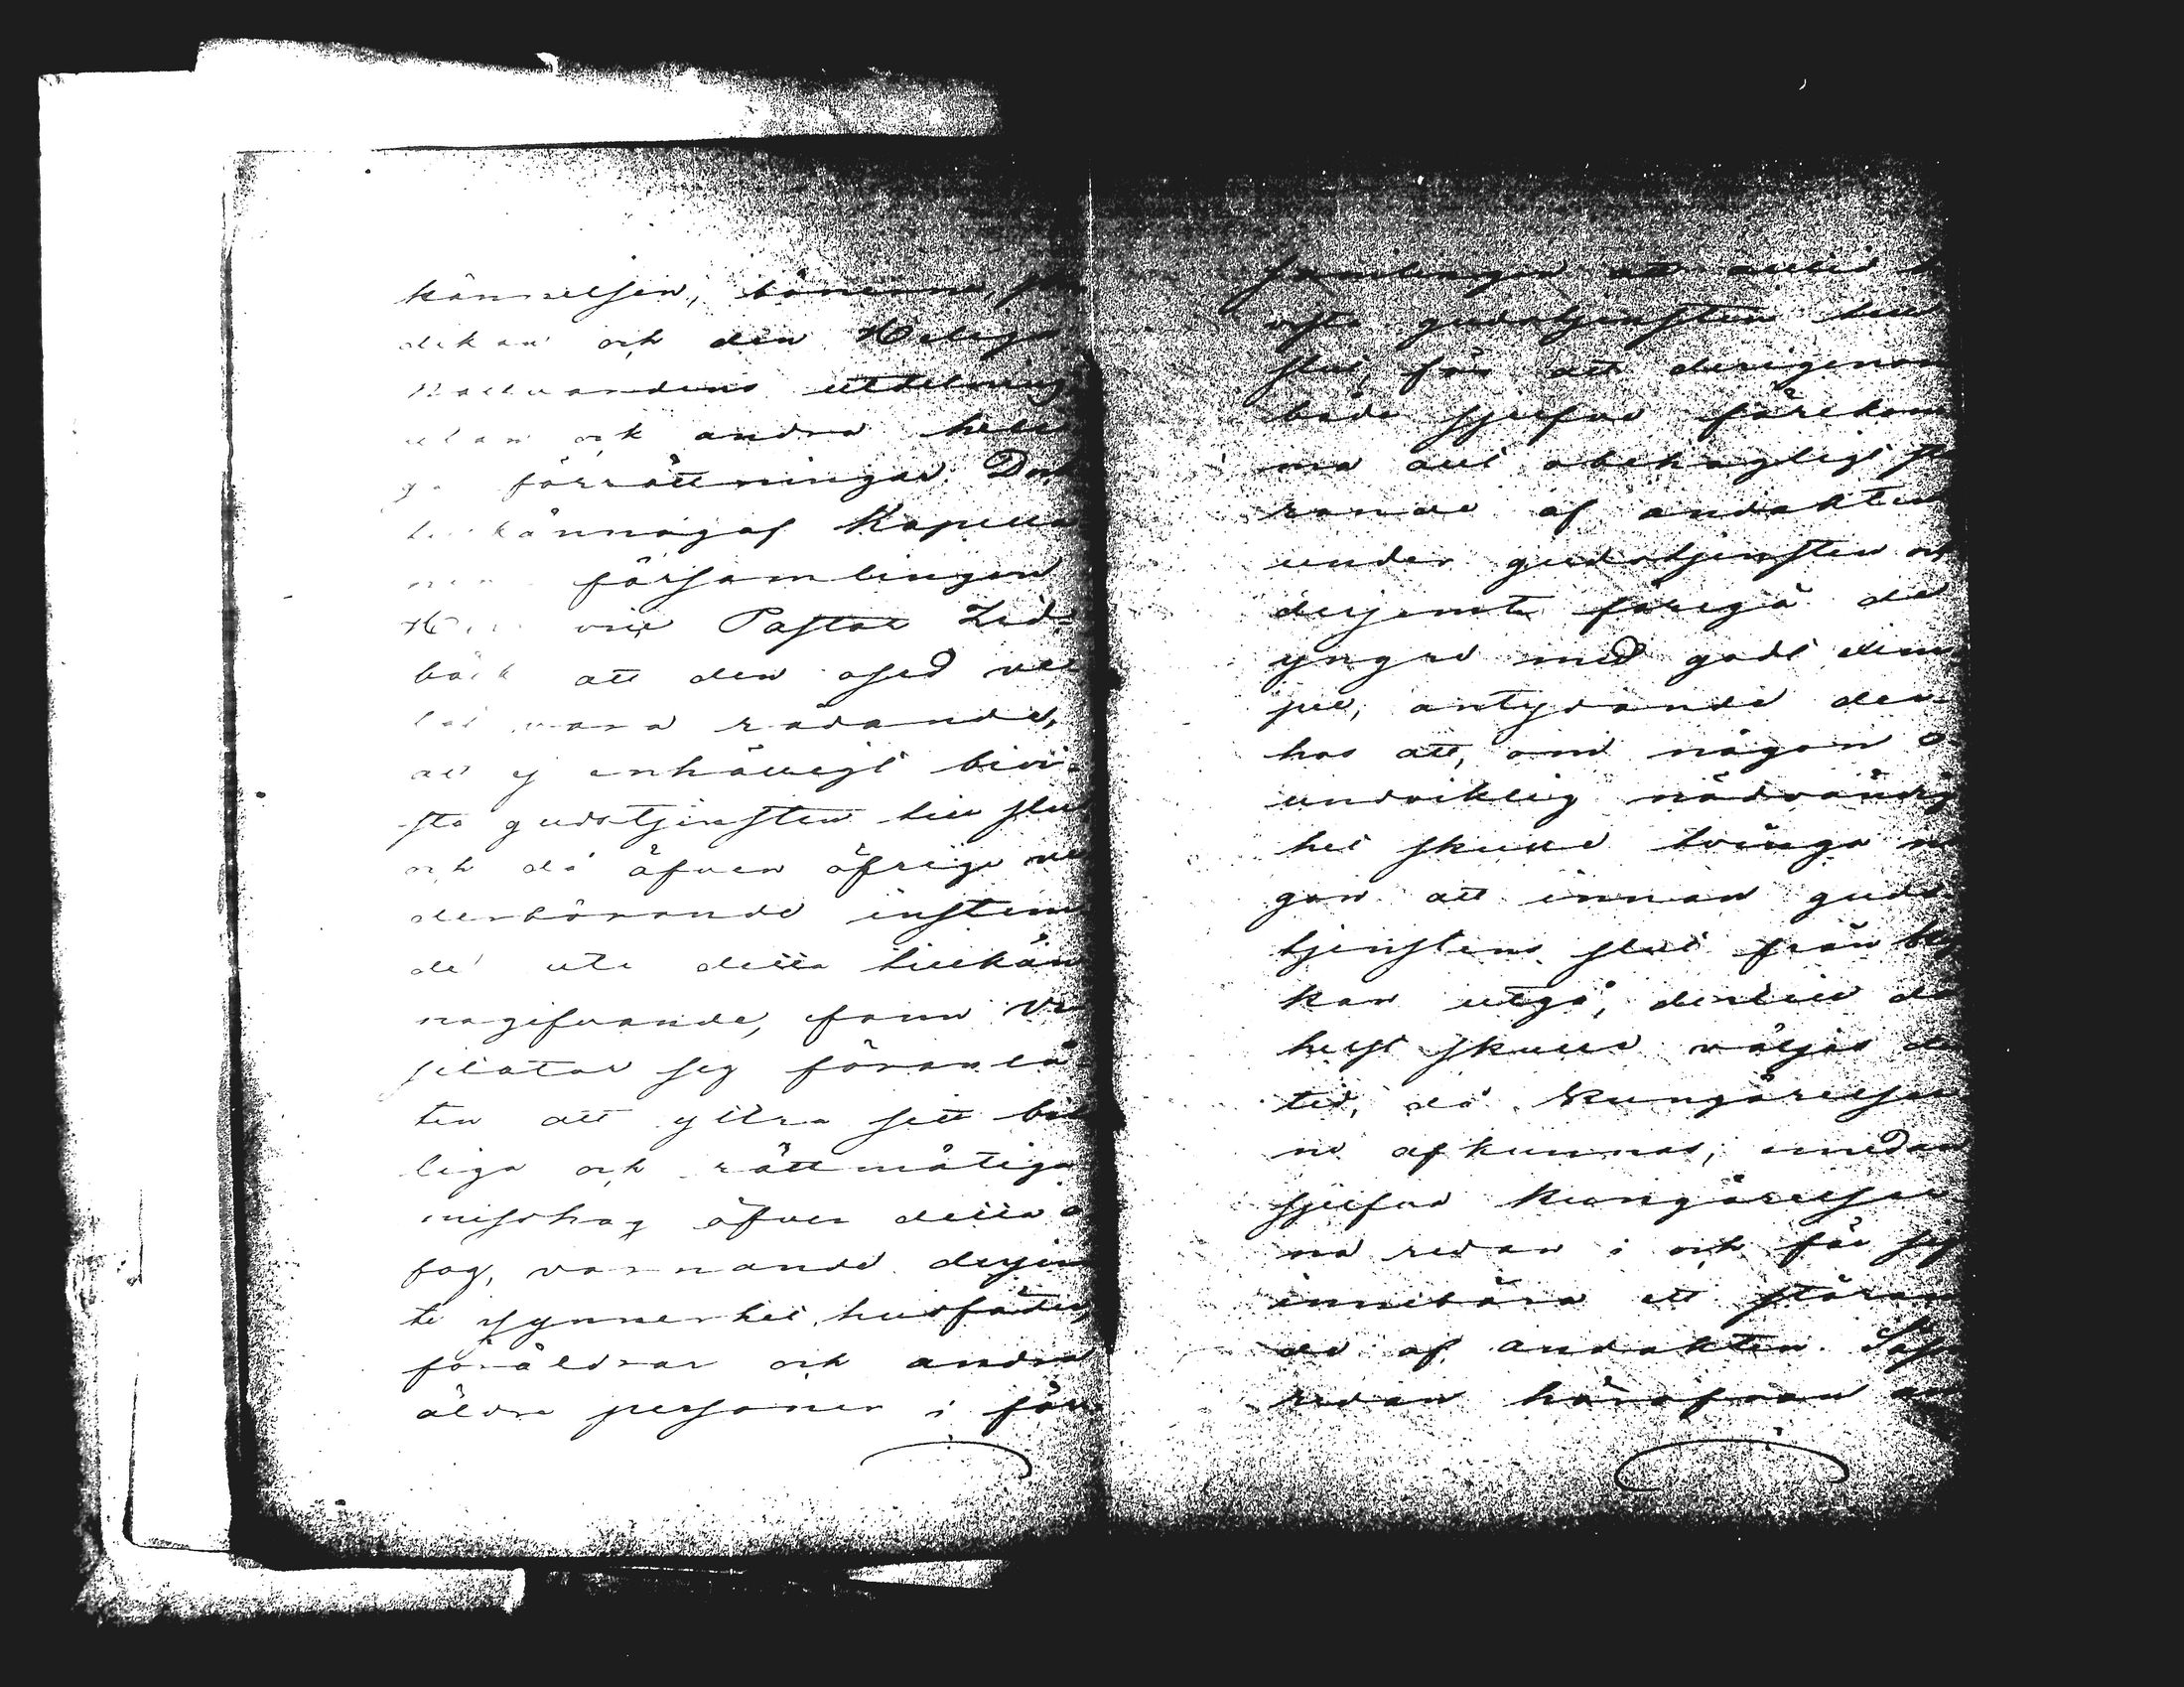 kännelsen, bönerna, pre
dikan och den Helige
Nattvardens utdelning,
utan ock andra heli-
ga förrättningar. Dock
tillkännagaf Kapella
nen församlingen
Herr vice Pastor Lid-
bäck att den osed vel
lat vara rådande,
att ej enhälligt bevi-
sta gudstjensten till slut
och då äfven öfrige ve
derbörande instem
de uti detta tillkän
nagifvande, fann Vi
sitator sig föranlå-
ten att yttra sitt bil
liga och rättmätiga
misshag öfver detta o
fog, varnande derjem
te i synnerhet husfäder,
föräldrar och andra
äldre personer i för-
samlingen att alltid bi
vista gudstjensten till
slut, för att derigenom
både sjelfva förekom
ma allt obehagligt stö
rande af andakten
under gudstjensten och
derjemte föregå de
yngre med godt exem
pel, antydande der-
hos att, om någon o-
undviklig nödvändig
het skulle tvinga nå
gon att innan guds
tjenstens slut från kyr
kan utgå, dertill då
helst skulle väljas den
tid, då Kungörelser
na afkunnas, emedan
sjelfva Kungörelser
na redan i och för sig
innebära ett störan
de af andakten. Så
redan härofvan an